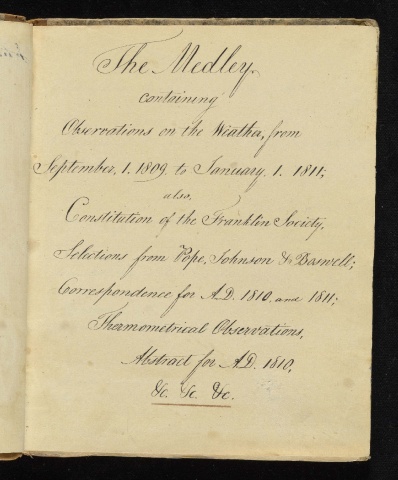 The Medley.
containing
Observations on the Weather, from
September, 1. 1809, to January, 1. 1811;
also,
Constitution of the Franklin Society,
Selections from Pope, Johnson & Boswell;
Correspondence for A.D. 1810, and 1811;
Thermometrical Observations,
Abstract for A.D. 1810,
&c. &c. &c.